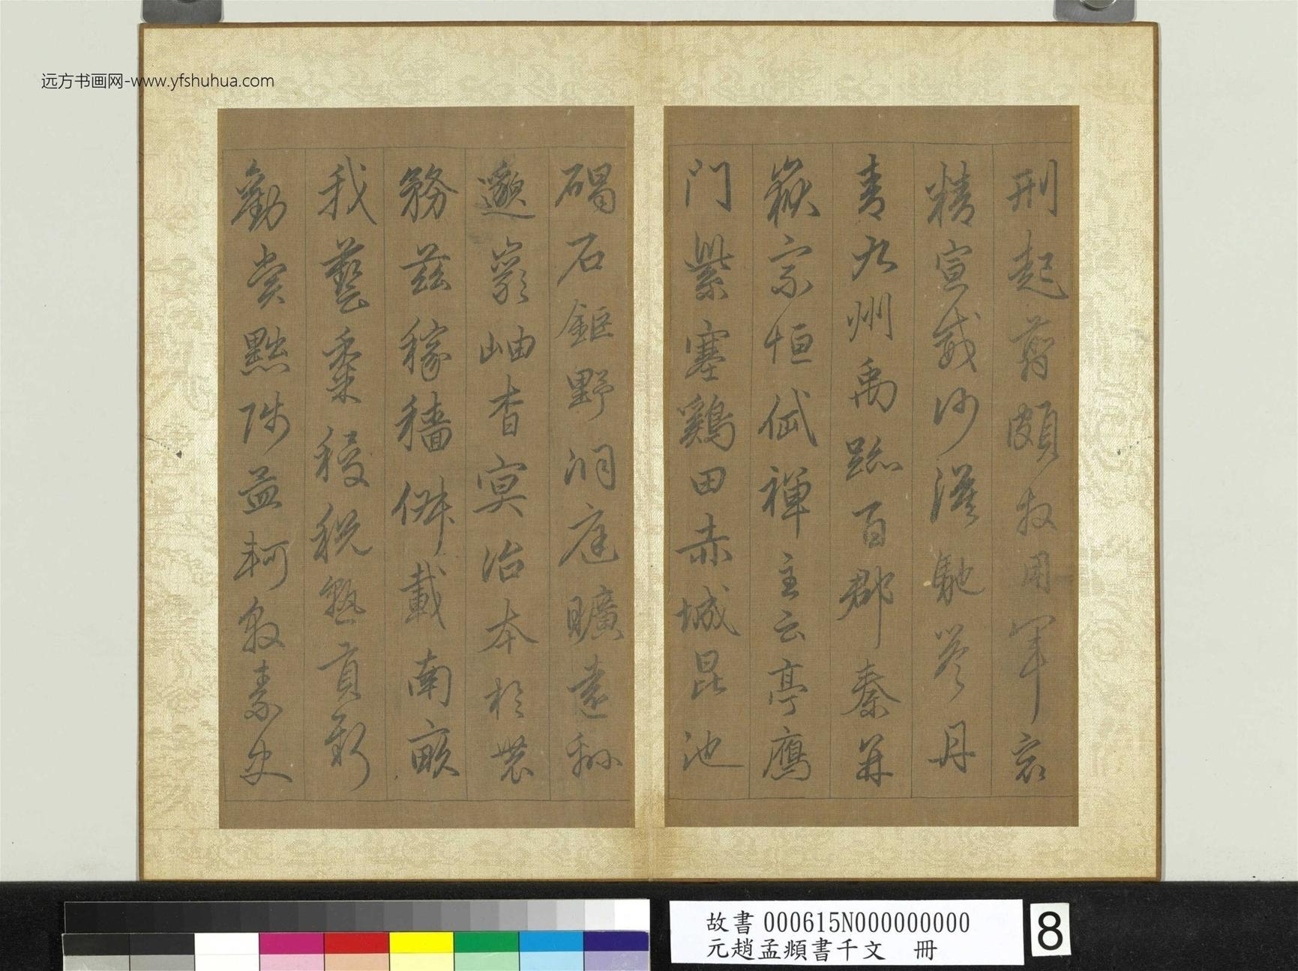 远方书画网-www.yfshuhua.com
刑起翦頗牧用軍㝡
精宣威沙漠馳誉丹
青九州禹跡百郡秦并
嶽宗恒岱禪主云亭鴈
門紫塞鷄田赤城昆池
碣石鉅野洞庭曠遠綿
邈巖岫杳冥治本於農
務茲稼穡俶載南畝
我藝黍稷稅熟貢新
勸賞黜陟孟軻敦素史
故書 000615N000000000
元趙孟頫書千文 冊
8